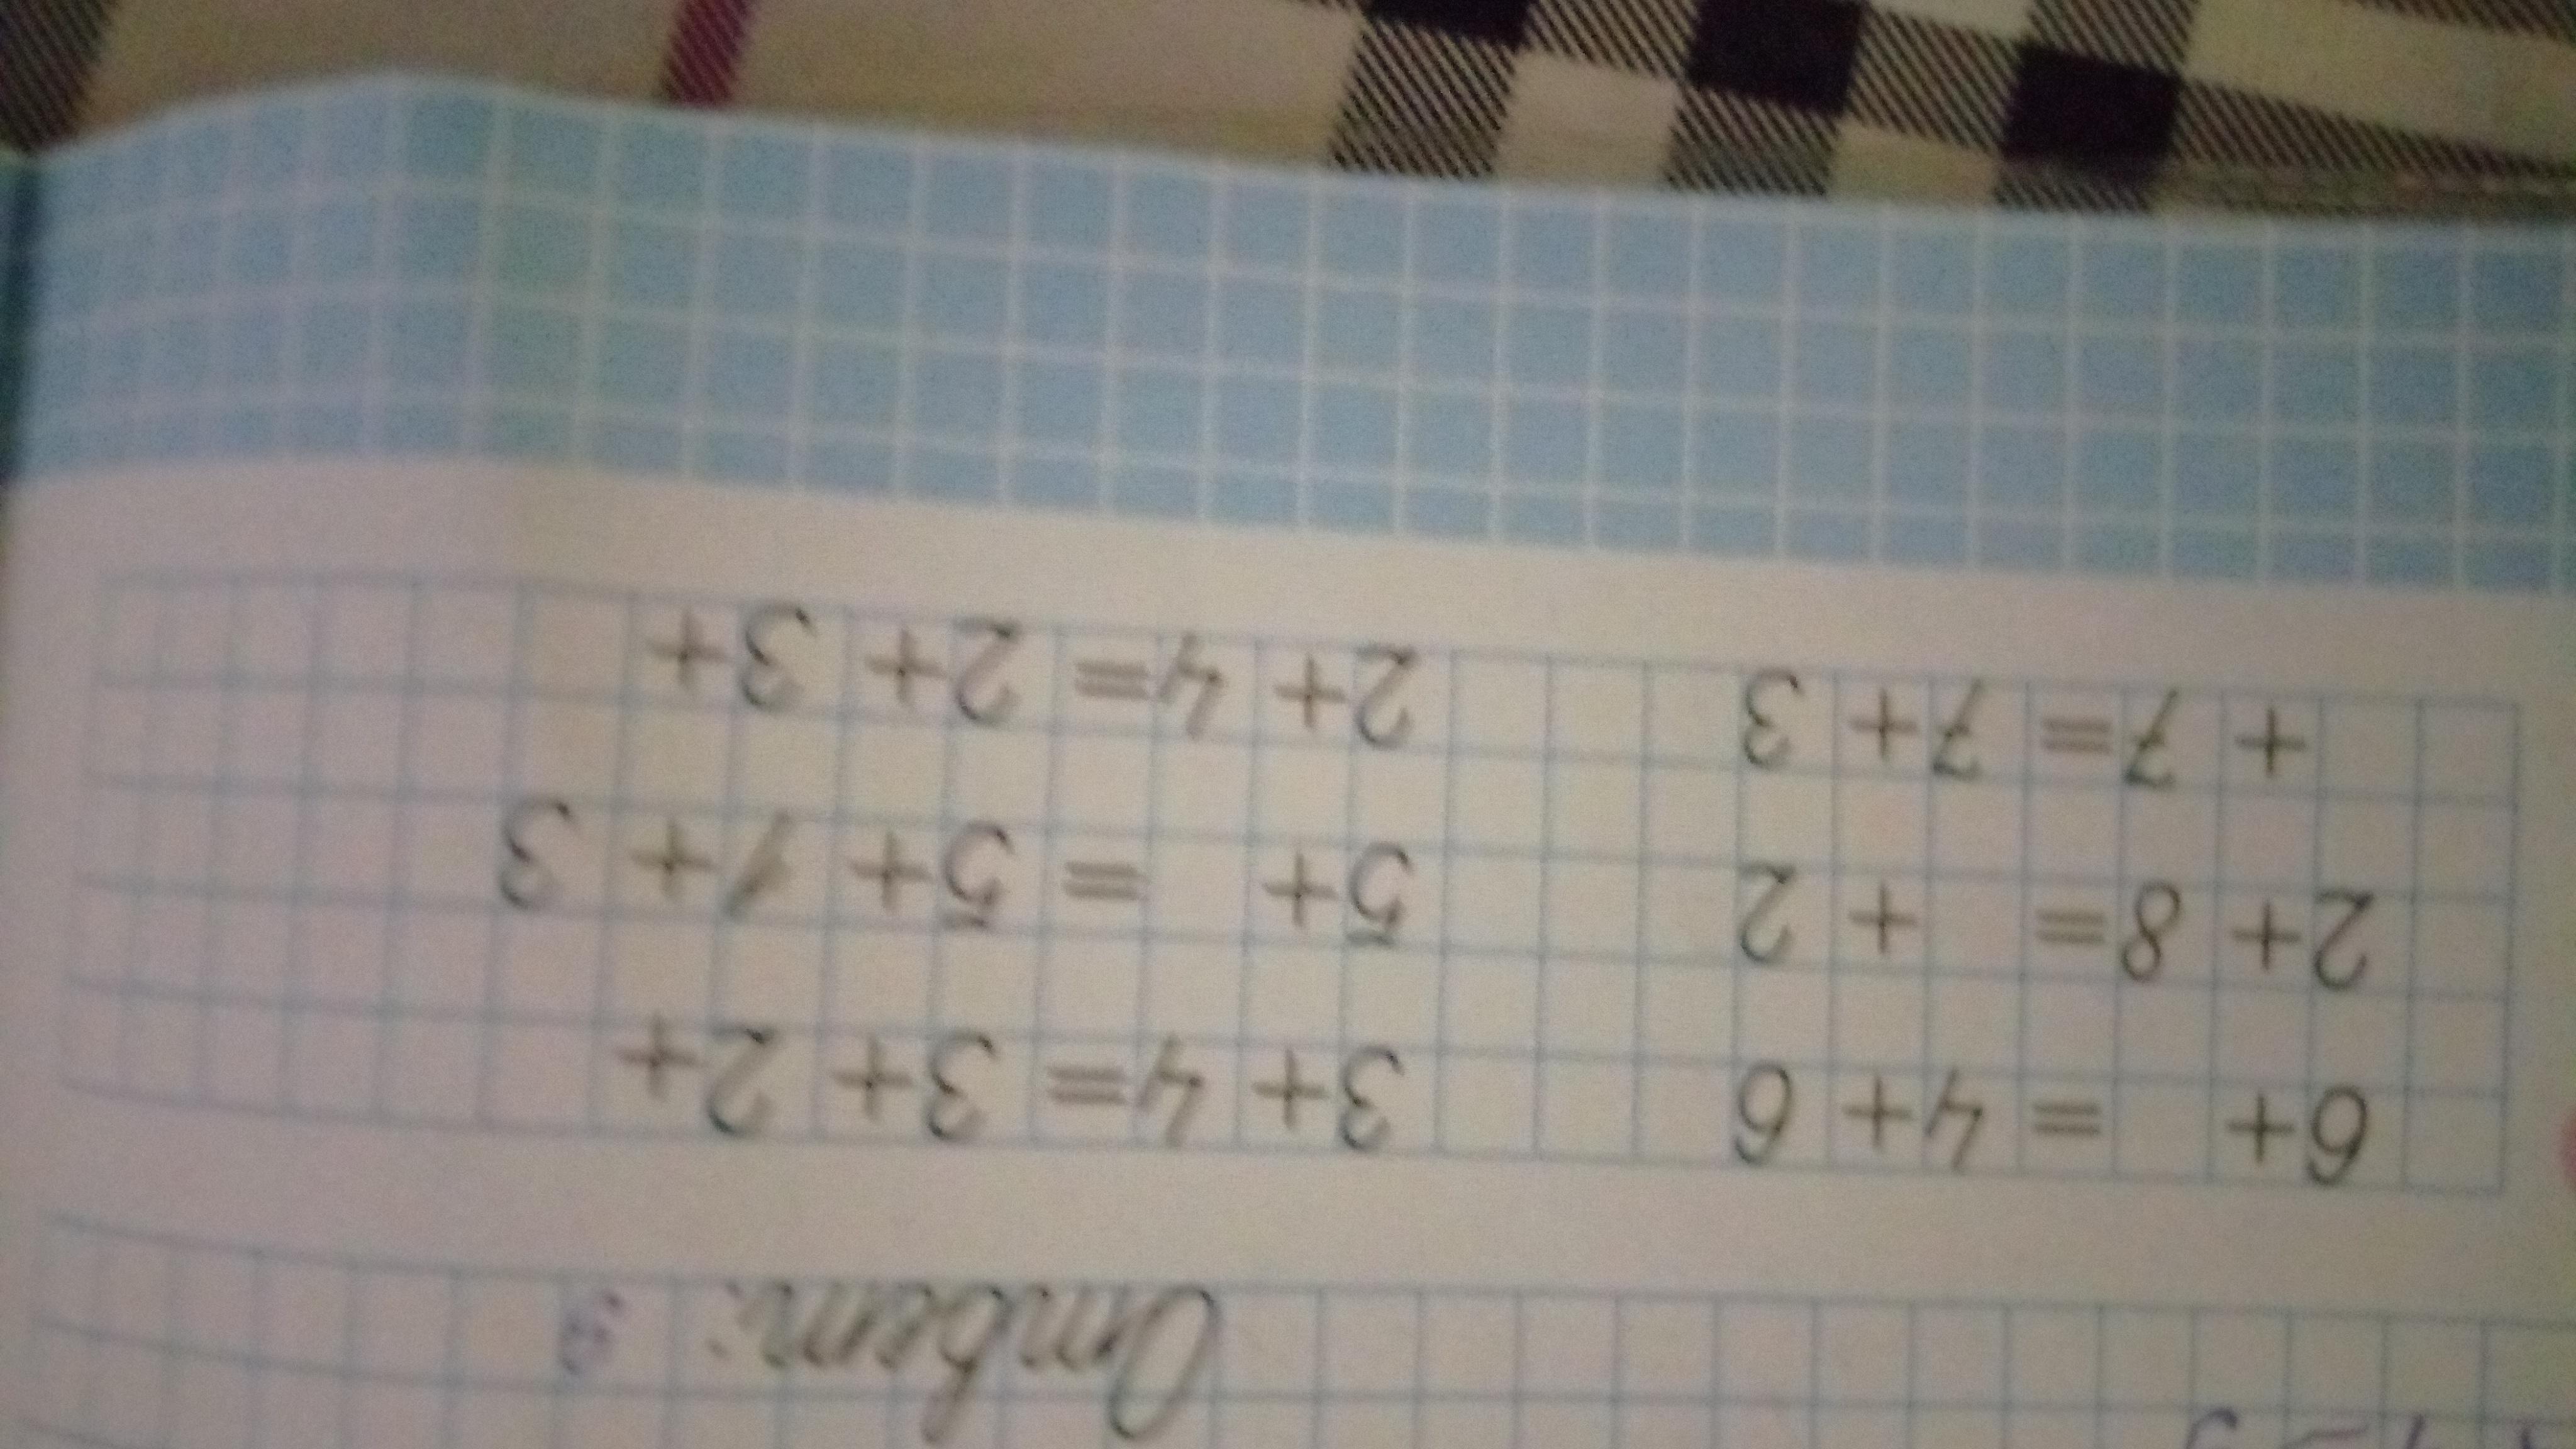 Ответ:
6+ =4+6 3+4=3+2+
2+8= +2 5+ =5+1+3
+7=7+3 2+4=2+3+